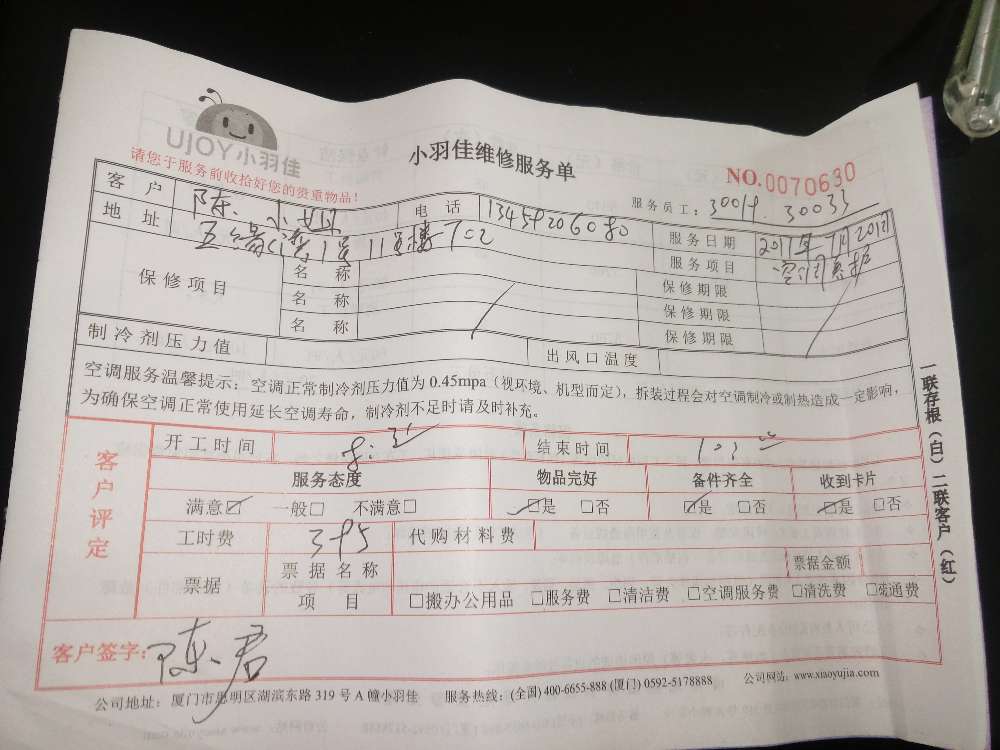 UJOY小羽佳
小羽佳维修服务单
NO.0070630
请您于服务前收拾好您的贵重物品!
服务员工: 30033
客户 陈小姐 电话 服务日期
地址 1号11号楼702 服务项目
保修项目 名称 保修期限
名称 保修期限
名称 保修期限
制冷剂压力值 出风口温度
空调服务温馨提示：空调正常制冷剂压力值为 0.45mpa（视环境、机型而定），拆装过程会对空调制冷或制热造成一定影响，
为确保空调正常使用延长空调寿命，制冷剂不足时请及时补充。
客户评定
开工时间 结束时间
服务态度 物品完好 备件齐全 收到卡片
满意☑ 一般□ 不满意□ ☑是 □否 ☑是 □否 ☑是 □否
工时费 代购材料费
票据 票据名称 票据金额
项目 □搬办公用品 □服务费 □清洁费 □空调服务费 □清洗费 □疏通费
客户签字: 陈君
公司地址：厦门市思明区湖滨东路 319 号 A 幢小羽佳 服务热线：(全国) 400-6655-888 (厦门) 0592-5178888 公司网站：www.xiaoyujia.com
一联存根（白）二联客户（红）